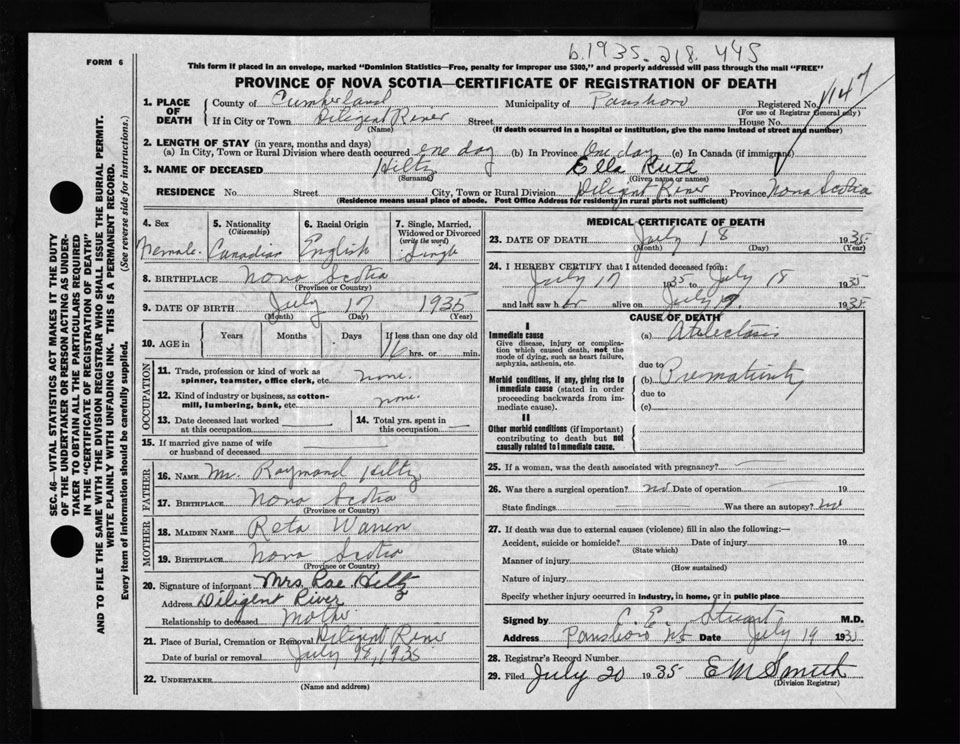 b. 1935. 218. 445
FORM 6
This form if placed in an envelope, marked "Dominion Statistics—Free, penalty for improper use $300," and properly addressed will pass through the mail "FREE"
PROVINCE OF NOVA SCOTIA—CERTIFICATE OF REGISTRATION OF DEATH
1. PLACE OF DEATH County of Cumberland Municipality of Parrsboro Registered No. 1147
(For use of Registrar General only)
If in City or Town Diligent River Street House No.
(Name) (If death occurred in a hospital or institution, give the name instead of street and number)
2. LENGTH OF STAY (in years, months and days)
(a) In City, Town or Rural Division where death occurred one day (b) In Province One day (c) In Canada (if immigrant)
3. NAME OF DECEASED Hiltz Ella Ruth
(Surname) (Given name or names)
RESIDENCE No. Street City, Town or Rural Division Diligent River Province Nova Scotia
(Residence means usual place of abode. Post Office Address for residents in rural parts not sufficient)
4. Sex Female.
5. Nationality (Citizenship) Canadian
6. Racial Origin English
7. Single, Married, Widowed or Divorced (write the word) Single
8. BIRTHPLACE Nova Scotia
(Province or Country)
9. DATE OF BIRTH July 17 1935
(Month) (Day) (Year)
10. AGE in Years Months Days If less than one day old
16 hrs. or min.
OCCUPATION
11. Trade, profession or kind of work as spinner, teamster, office clerk, etc. none.
12. Kind of industry or business, as cotton-mill, lumbering, bank, etc. none.
13. Date deceased last worked at this occupation
14. Total yrs. spent in this occupation
15. If married give name of wife or husband of deceased
FATHER
16. NAME Mr. Raymond Hiltz
17. BIRTHPLACE Nova Scotia
(Province or Country)
MOTHER
18. MAIDEN NAME Reta Warren
19. BIRTHPLACE Nova Scotia
(Province or Country)
20. Signature of informant Mrs. Rae Hiltz
Address Diligent River
Relationship to deceased Mother
21. Place of Burial, Cremation or Removal Diligent River
Date of burial or removal July 1935
22. UNDERTAKER
(Name and address)
MEDICAL CERTIFICATE OF DEATH
23. DATE OF DEATH July 18 1935
(Month) (Day) (Year)
24. I HEREBY CERTIFY that I attended deceased from:
July 17 1935 to July 18 1935
and last saw her alive on July 1935
CAUSE OF DEATH
I
Immediate cause
Give disease, injury or complication which caused death, not the mode of dying, such as heart failure, asphyxia, asthenia, etc.
(a) Atelectasis
due to
Morbid conditions, if any, giving rise to immediate cause (stated in order proceeding backwards from immediate cause).
(b) Prematurity
due to
(c)
II
Other morbid conditions (if important) contributing to death but not causally related to immediate cause.
25. If a woman, was the death associated with pregnancy?
26. Was there a surgical operation? no Date of operation 19
State findings Was there an autopsy? no
27. If death was due to external causes (violence) fill in also the following:—
Accident, suicide or homicide? Date of injury 19
(State which)
Manner of injury
(How sustained)
Nature of injury
Specify whether injury occurred in industry, in home, or in public place
Signed by C. E. Stuart M.D.
Address Parrsboro NS Date July 19 1935
28. Registrar's Record Number
29. Filed July 20 1935 E M Smith
(Division Registrar)
SEC. 46—VITAL STATISTICS ACT MAKES IT THE DUTY
OF THE UNDERTAKER OR PERSON ACTING AS UNDER-
TAKER TO OBTAIN ALL THE PARTICULARS REQUIRED
IN THE "CERTIFICATE OF REGISTRATION OF DEATH"
AND TO FILE THE SAME WITH THE DIVISION REGISTRAR WHO SHALL ISSUE THE BURIAL PERMIT.
WRITE PLAINLY WITH UNFADING INK. THIS IS A PERMANENT RECORD.
Every item of information should be carefully supplied. (See reverse side for instructions.)